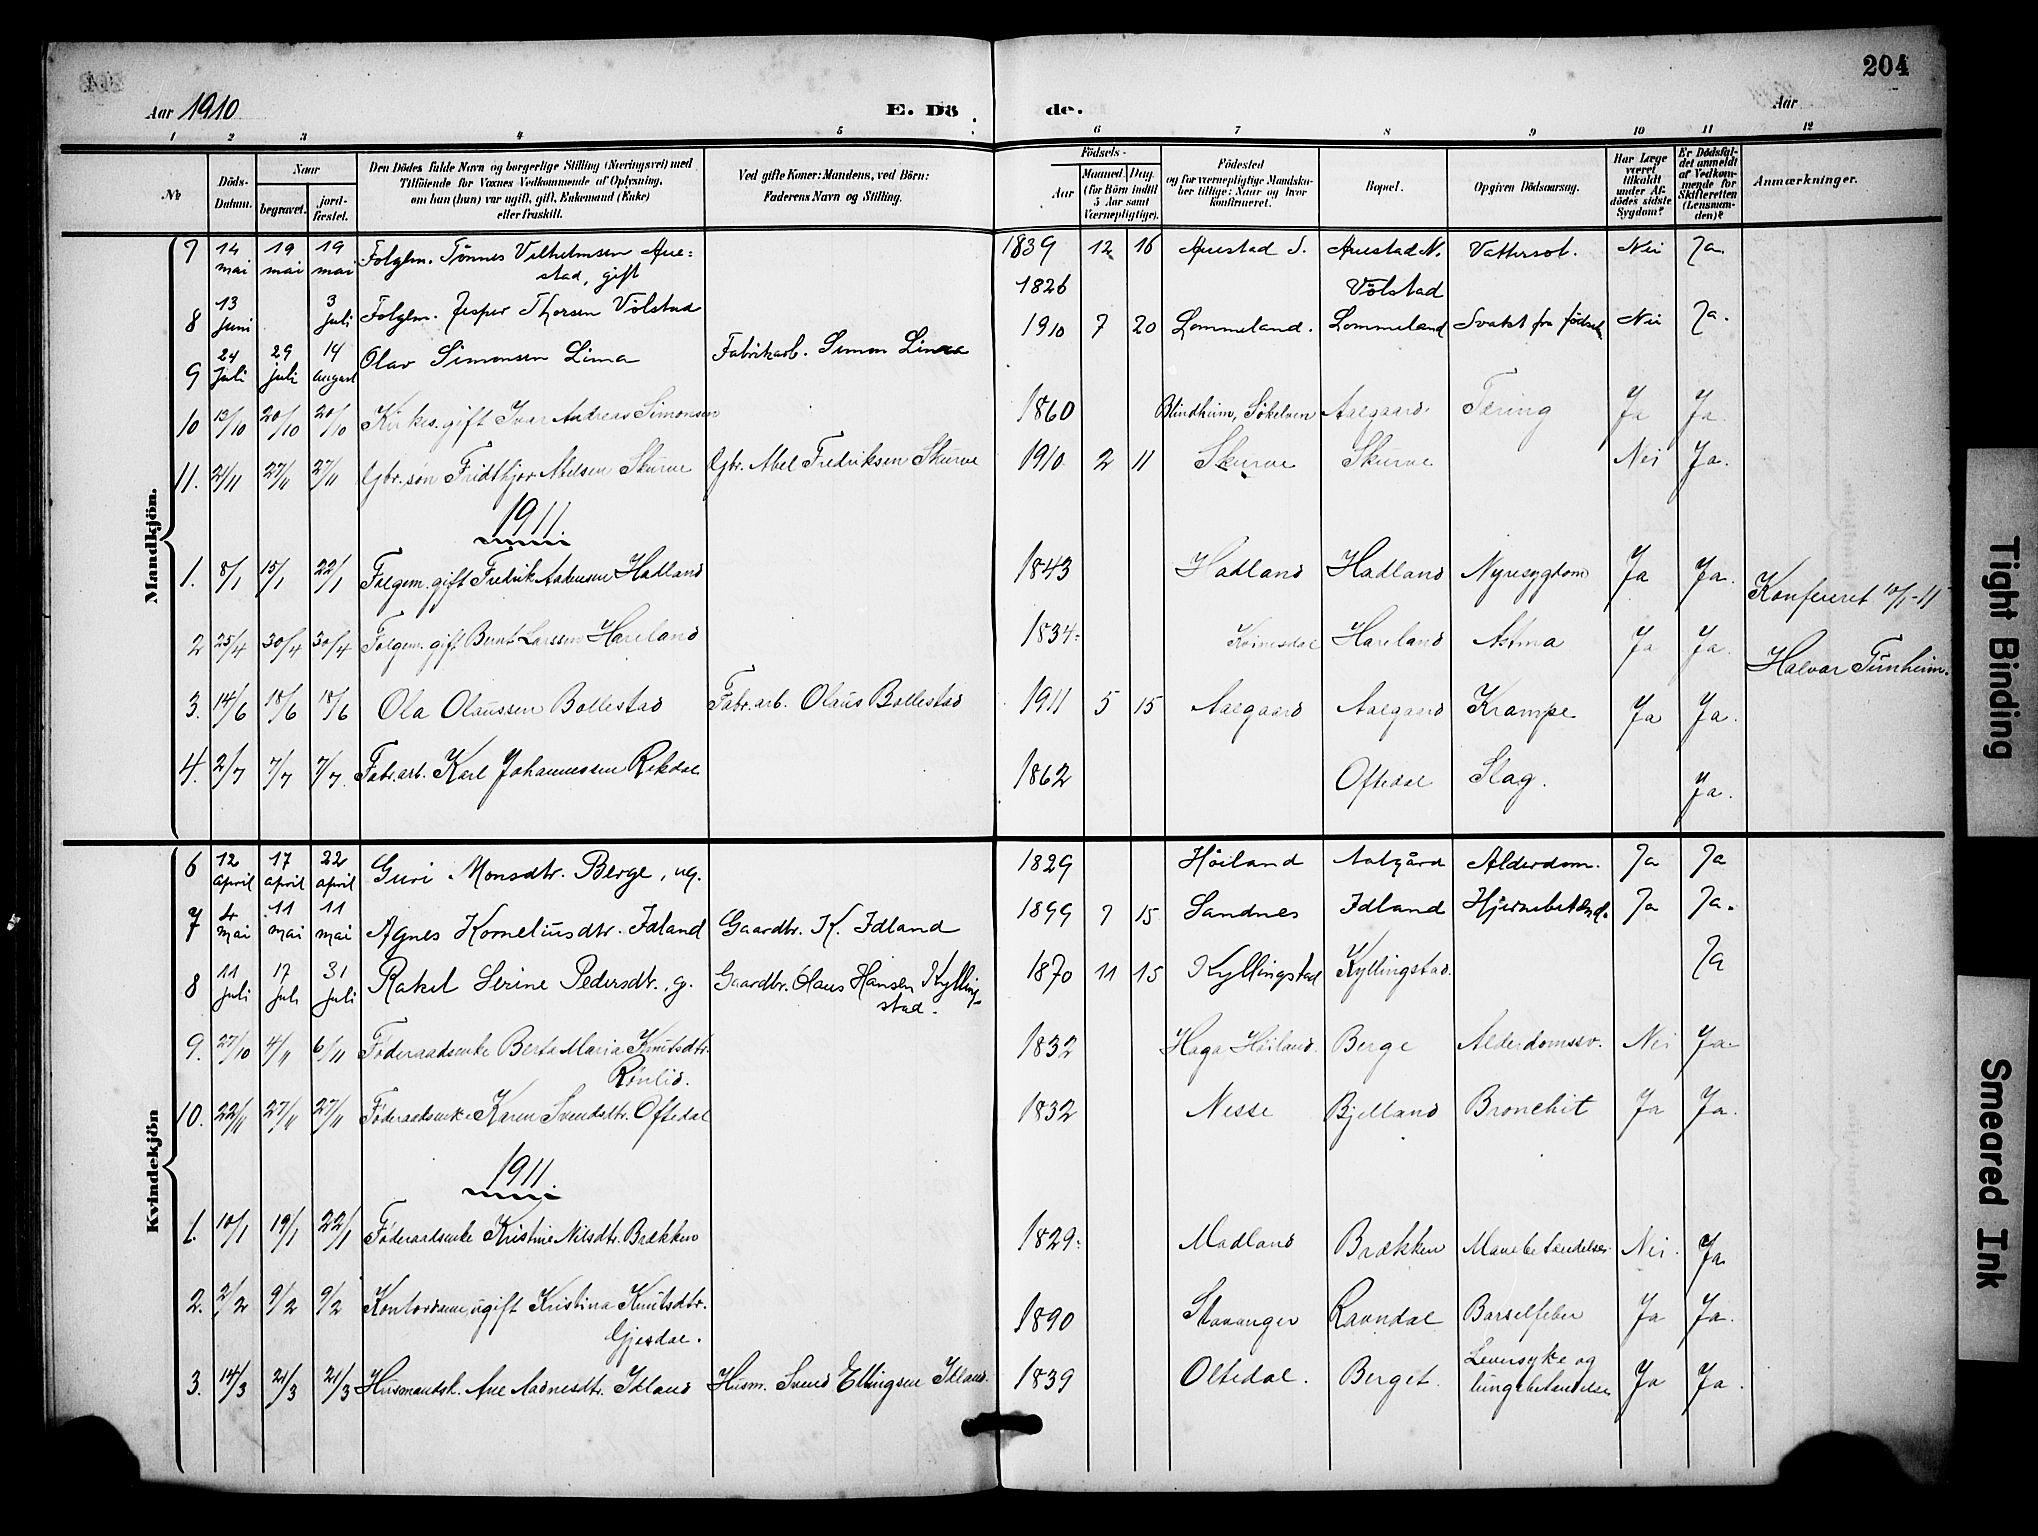 204
Aar 1910
E. Dö de.
Aar
1 2 3 4 5 6 7 8 9 10 11 12
No
Döds-Datum.
Naar
begravet.
jord-fæstet.
Den Dödes fulde Navn og borgerlige Stilling (Næringsvei) med
Tilföiende for Voxnes Vedkommende af Oplysning,
om han (hun) var ugift, gift, Enkemand (Enke)
eller fraskilt.
Ved gifte Koner: Mandens, ved Börn:
Faderens Navn og Stilling.
Födsels-
Aar
Maaned. Dag.
(for Börn indtil
5 Aar samt
Værnepligtige).
Födested
og for værnepligtige Mandska-
ber tillige: Naar og hvor
konfirmeret.
Bopæl.
Opgiven Dödsaarsag.
Har Læge
været
tilkaldt
under Af-
dödes sidste
Sygdom?
Er Dödsfal-
det anmeldt
af Vedkom-
mende for
Skifteretten
(Lensman-
den)?
Anmærkninger.
Mandkjön.
7 14 mai 19 mai 19 mai Folgem. Tönnes Vilhelmsen Aue=
stad, gift 1839 12 16 Auestad S. Auestad N. Vattersot. Nei Ja.
8 13 juni 3 juli Folgem. Jesper Thorsen Völstad 1826 Völstad
9 24 juli 29 juli 14 august Olav Simonsen Lima Fabrikarb. Simon Lima 1910 7 20 Lommeland. Lommeland Svakst fra födsel Nei Ja.
10 13/10 20/10 20/10 Kirkes. gift Ivar Andreas Simonsen 1860 Blindheim, Sökelven Aalgaard. Tering Ja Ja.
11. 21/11 27/11 27/11 Gbr. sön Fridthjov Abelsen Skurve Gbr. Abel Fredriksen Skurve 1910 2 11 Skurve Skurve Nei Ja.
1911
1. 8/1 15/1 22/1 Folgem. gift Fredrik Aanensen Hadland 1843 Hadland Hadland Nyresygdom Ja Ja.
Konfereret 10/1-11
2 25/4 30/4 30/4 Folgem. gift Bernt Larssen Hareland 1834. Kvinesdal Hareland Astma Ja Ja.
Halvar Turnheim.
3. 14/6 18/6 18/6 Ola Olaussen Bollestad Fabr. arb. Olaus Bollestad 1911 5 15 Aalgaard Aalgaard Krampe Ja Ja.
4. 2/7 7/7 7/7. Fabr. arb. Karl Johannessen Rekdal 1862 Oftedal Slag. Ja.
Kvindekjön
6 12 april 17 april 22 april Guri Monsdtr. Berge, ug. 1829 Höiland Aalgård Alderdom. Ja Ja
7 4 mai 11 mai 11 mai Agnes Korneliusdtr. Idland Gaardbr. K. Idland 1899 7 15 Sandnes Idland Hjernebetænd. Ja Ja.
8 11 juli 17 juli 31 juli Rakel Serine Pedersdtr., g. Gaardbr. Claus Hansen Kylling-
stad. 1870 11 15 Kyllingstad Kyllingstad. Ja
9. 27/10 4/11 6/11 Föderaadsenke Berta Maria Knutsdtr.
Rönlid. 1832 Haga Höiland. Berge Alderdomssv. Nei Ja.
10. 22/11 27/11 27/11 Föderaadsenke Karen Svendsdtr. Oftedal 1832 Nesse Bjelland Bronchit Ja Ja.
1911
1. 10/1 19/1 22/1 Föderaadsenke Kristine Nilsdtr. Brækken 1829. Madland Brækken Mavebetændelse Nei. Ja.
2. 2/2 9/2 9/2 Kontordame, ugift Kristina Knutsdtr.
Gjesdal. 1890 Stavanger Ravndal Barselfeber Ja Ja.
3. 14/3 21/3 21/3 Husmandsk. Ane Aadnesdtr. Idland Husm. Svend Ellingsen Idland. 1839 Oltedal. Berget. Leversyke og
lungebetændelse Ja Ja.
Tight Binding
Smeared Ink